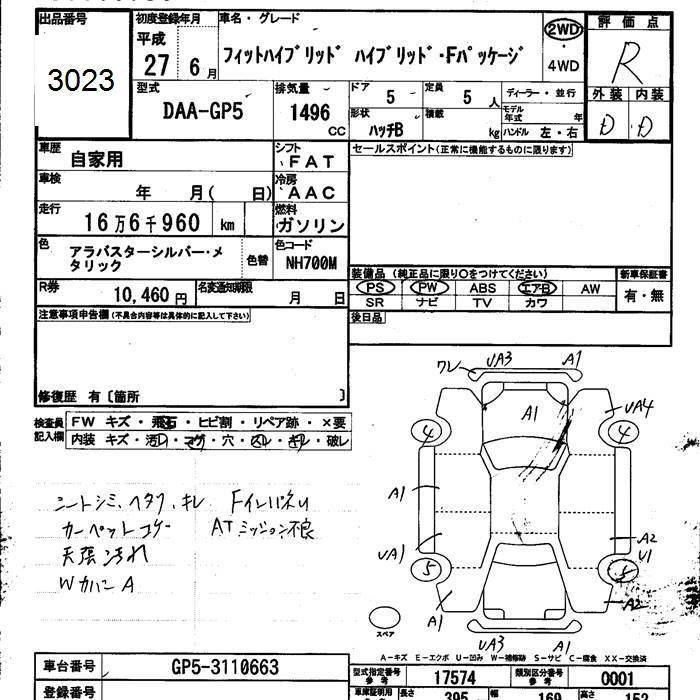 出品番号 3023
初度登録年月 平成 27 6月
車名・グレード フィットハイブリッド ハイブリッド・Fパッケージ
2WD ・ 4WD
評価点 R
外装 D 内装 D
型式 DAA-GP5
排気量 1496 CC
ドア 5 定員 5 人
形状 ハッチB 積載 kg
ディーラー・並行
モデル年式 年
ハンドル 左・右
車歴 自家用
シフト FAT
セールスポイント(正常に機能するものに限ります)
車検 年 月( 日)
冷房 AAC
走行 16万6千960 km
燃料 ガソリン
色 アラバスターシルバー・メタリック
色替
色コード NH700M
装備品(純正品に限り○をつけてください) 新車保証書
PS PW ABS エアB AW 有・無
SR ナビ TV カワ
R券 10,460円 名変通知期限 月 日
後日品
注意事項申告欄(不具合内容等は具体的に記入して下さい)
修復歴 有〔箇所 〕
検査員記入欄
FW キズ・飛石・ヒビ割・リペア跡・×要
内装 キズ・汚レ・コゲ・穴・スレ・キレ・破レ
シートシミ、ヘタリ、キレ Fインパネハ
カーペットコゲ ATミッション不良
天張汚れ
WカバーA
ワレ UA3 A1
A1 UA4
4 4
A1
UA1 A2
U1
5 5
A1 A2
スペア
UA3 A1
A-キズ E-エクボ U-凹み W-補修跡 S-サビ C-腐食 XX-交換済
車台番号 GP5-3110663
型式指定番号 参考 17574 類別区分番号 参考 0001
登録番号
車庫証明用 参考 長さ 395 幅 169 高さ 152